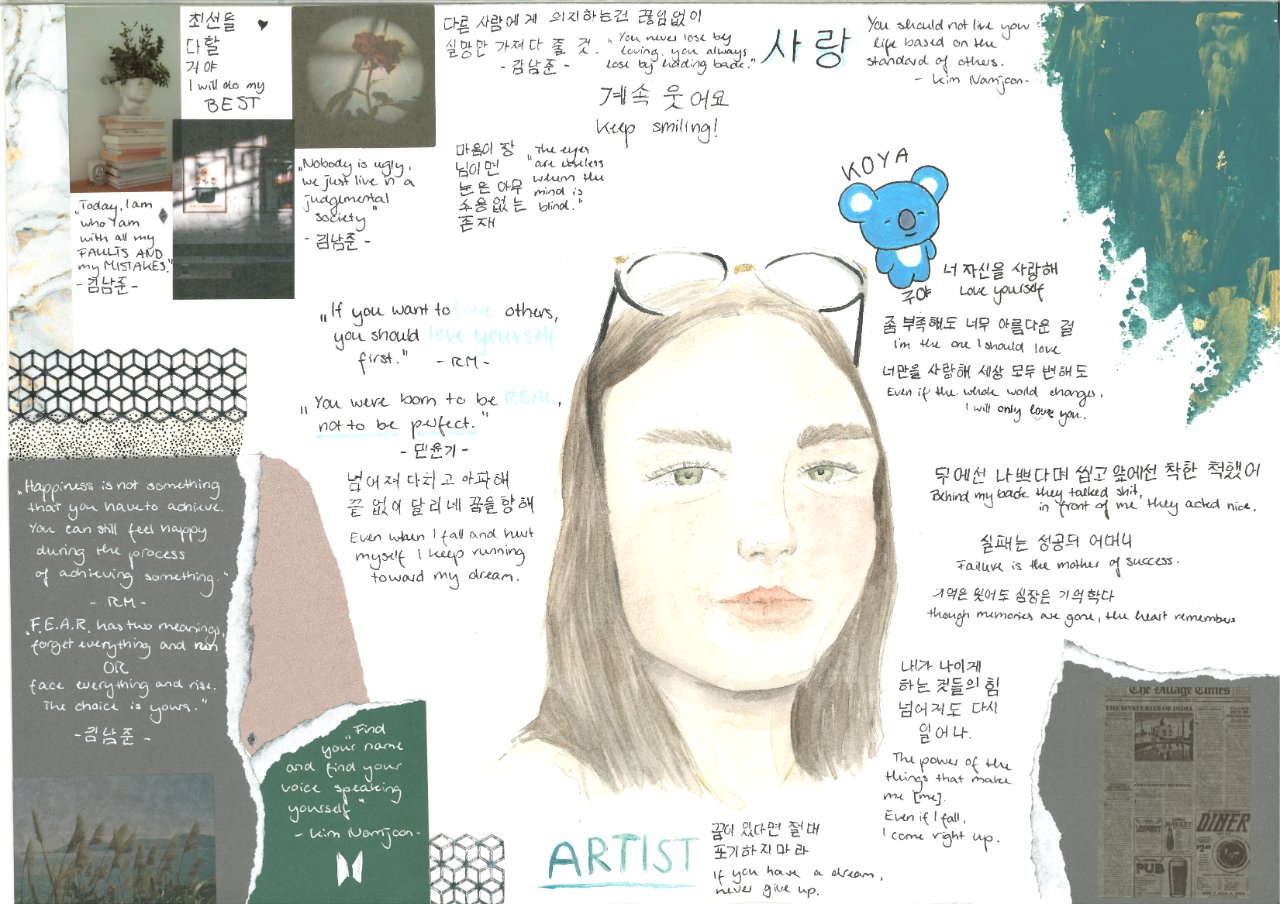 최선을
다할
거야
I will do my
BEST
"Today, I am
who I am
with all my
FAULTS AND
my MISTAKES."
- 김남준 -
"Nobody is ugly,
we just live in a
judgemental
society"
- 김남준 -
다른 사람에게 의지하는건 끊임없이
실망만 가져다 줄 것.
- 김남준 -
"You never lose by
loving, you always
lose by holding back."
사랑
You should not live your
life based on the
standard of others.
- Kim Namjoon -
계속 웃어요
Keep smiling!
마음이 장
님이면
눈은 아무
소용없는
존재
"The eyes
are useless
when the
mind is
blind."
KOYA
코야
너 자신을 사랑해
Love yourself
좀 부족해도 너무 아름다운 걸
I'm the one I should love
너만을 사랑해 세상 모두 변해도
Even if the whole world changes,
I will only love you.
"If you want to love others,
you should love yourself
first."
- RM -
"You were born to be REAL,
not to be perfect."
- 민윤기 -
넘어져 다치고 아파해
끝 없이 달리네 꿈을 향해
Even when I fall and hurt
myself I keep running
toward my dream.
뒤에선 나쁘다며 씹고 앞에선 착한 척했어
Behind my back they talked shit,
in front of me they acted nice.
실패는 성공의 어머니
Failure is the mother of success.
기억은 잊어도 심장은 기억한다
though memories are gone, the heart remembers
"Happiness is not something
that you have to achieve.
You can still feel happy
during the process
of achieving something."
- RM -
"F.E.A.R. has two meanings,
forget everything and run
OR
face everything and rise.
The choice is yours."
- 김남준 -
"Find
your name
and find your
voice speaking
yourself"
- Kim Namjoon -
내가 나이게
하는 것들의 힘
넘어져도 다시
일어나.
The power of the
things that make
me [me].
Even if I fall,
I come right up.
ARTIST
꿈이 있다면 절대
포기하지 마라
If you have a dream,
never give up.
The Village Times
THE MYSTERIES OF INDIA
MARKET
DINER
PUB